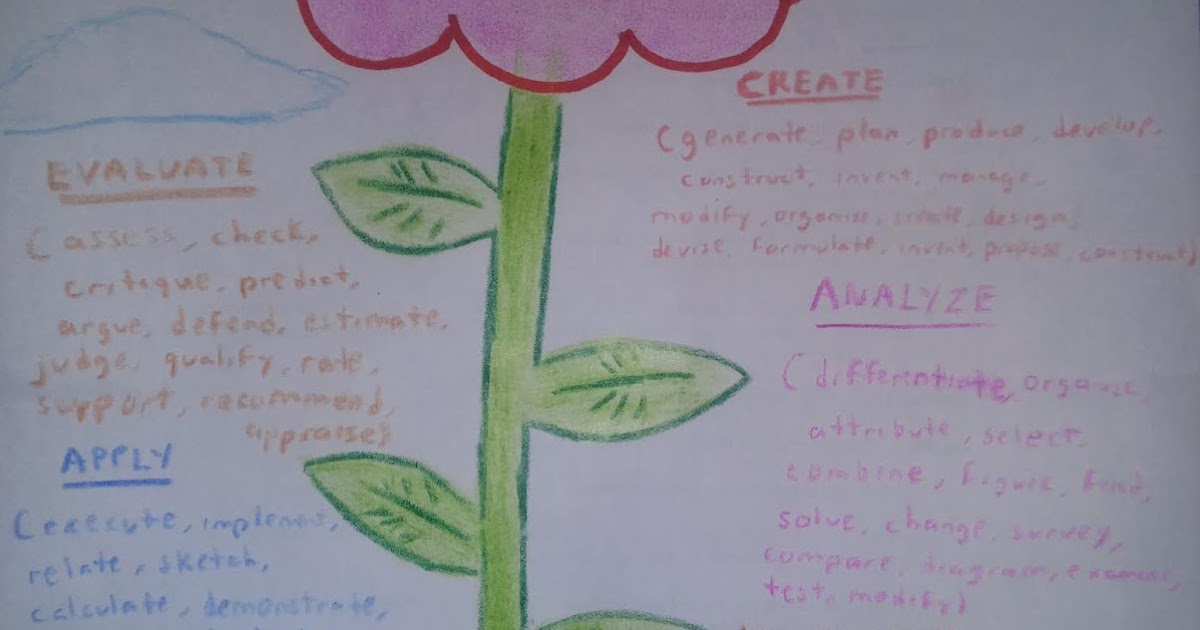 EVALUATE
(assess, check,
critique, predict,
argue, defend, estimate,
judge, qualify, rate,
support, recommend,
appraise)
APPLY
(execute, implement,
relate, sketch,
calculate, demonstrate,
CREATE
(generate, plan, produce, develop,
construct, invent, manage,
modify, organise, create, design,
devise, formulate, invent, propose, construct)
ANALYZE
(differentiate, organize,
attribute, select,
combine, figure, find,
solve, change, survey,
compare, diagram, examine,
test, modify)